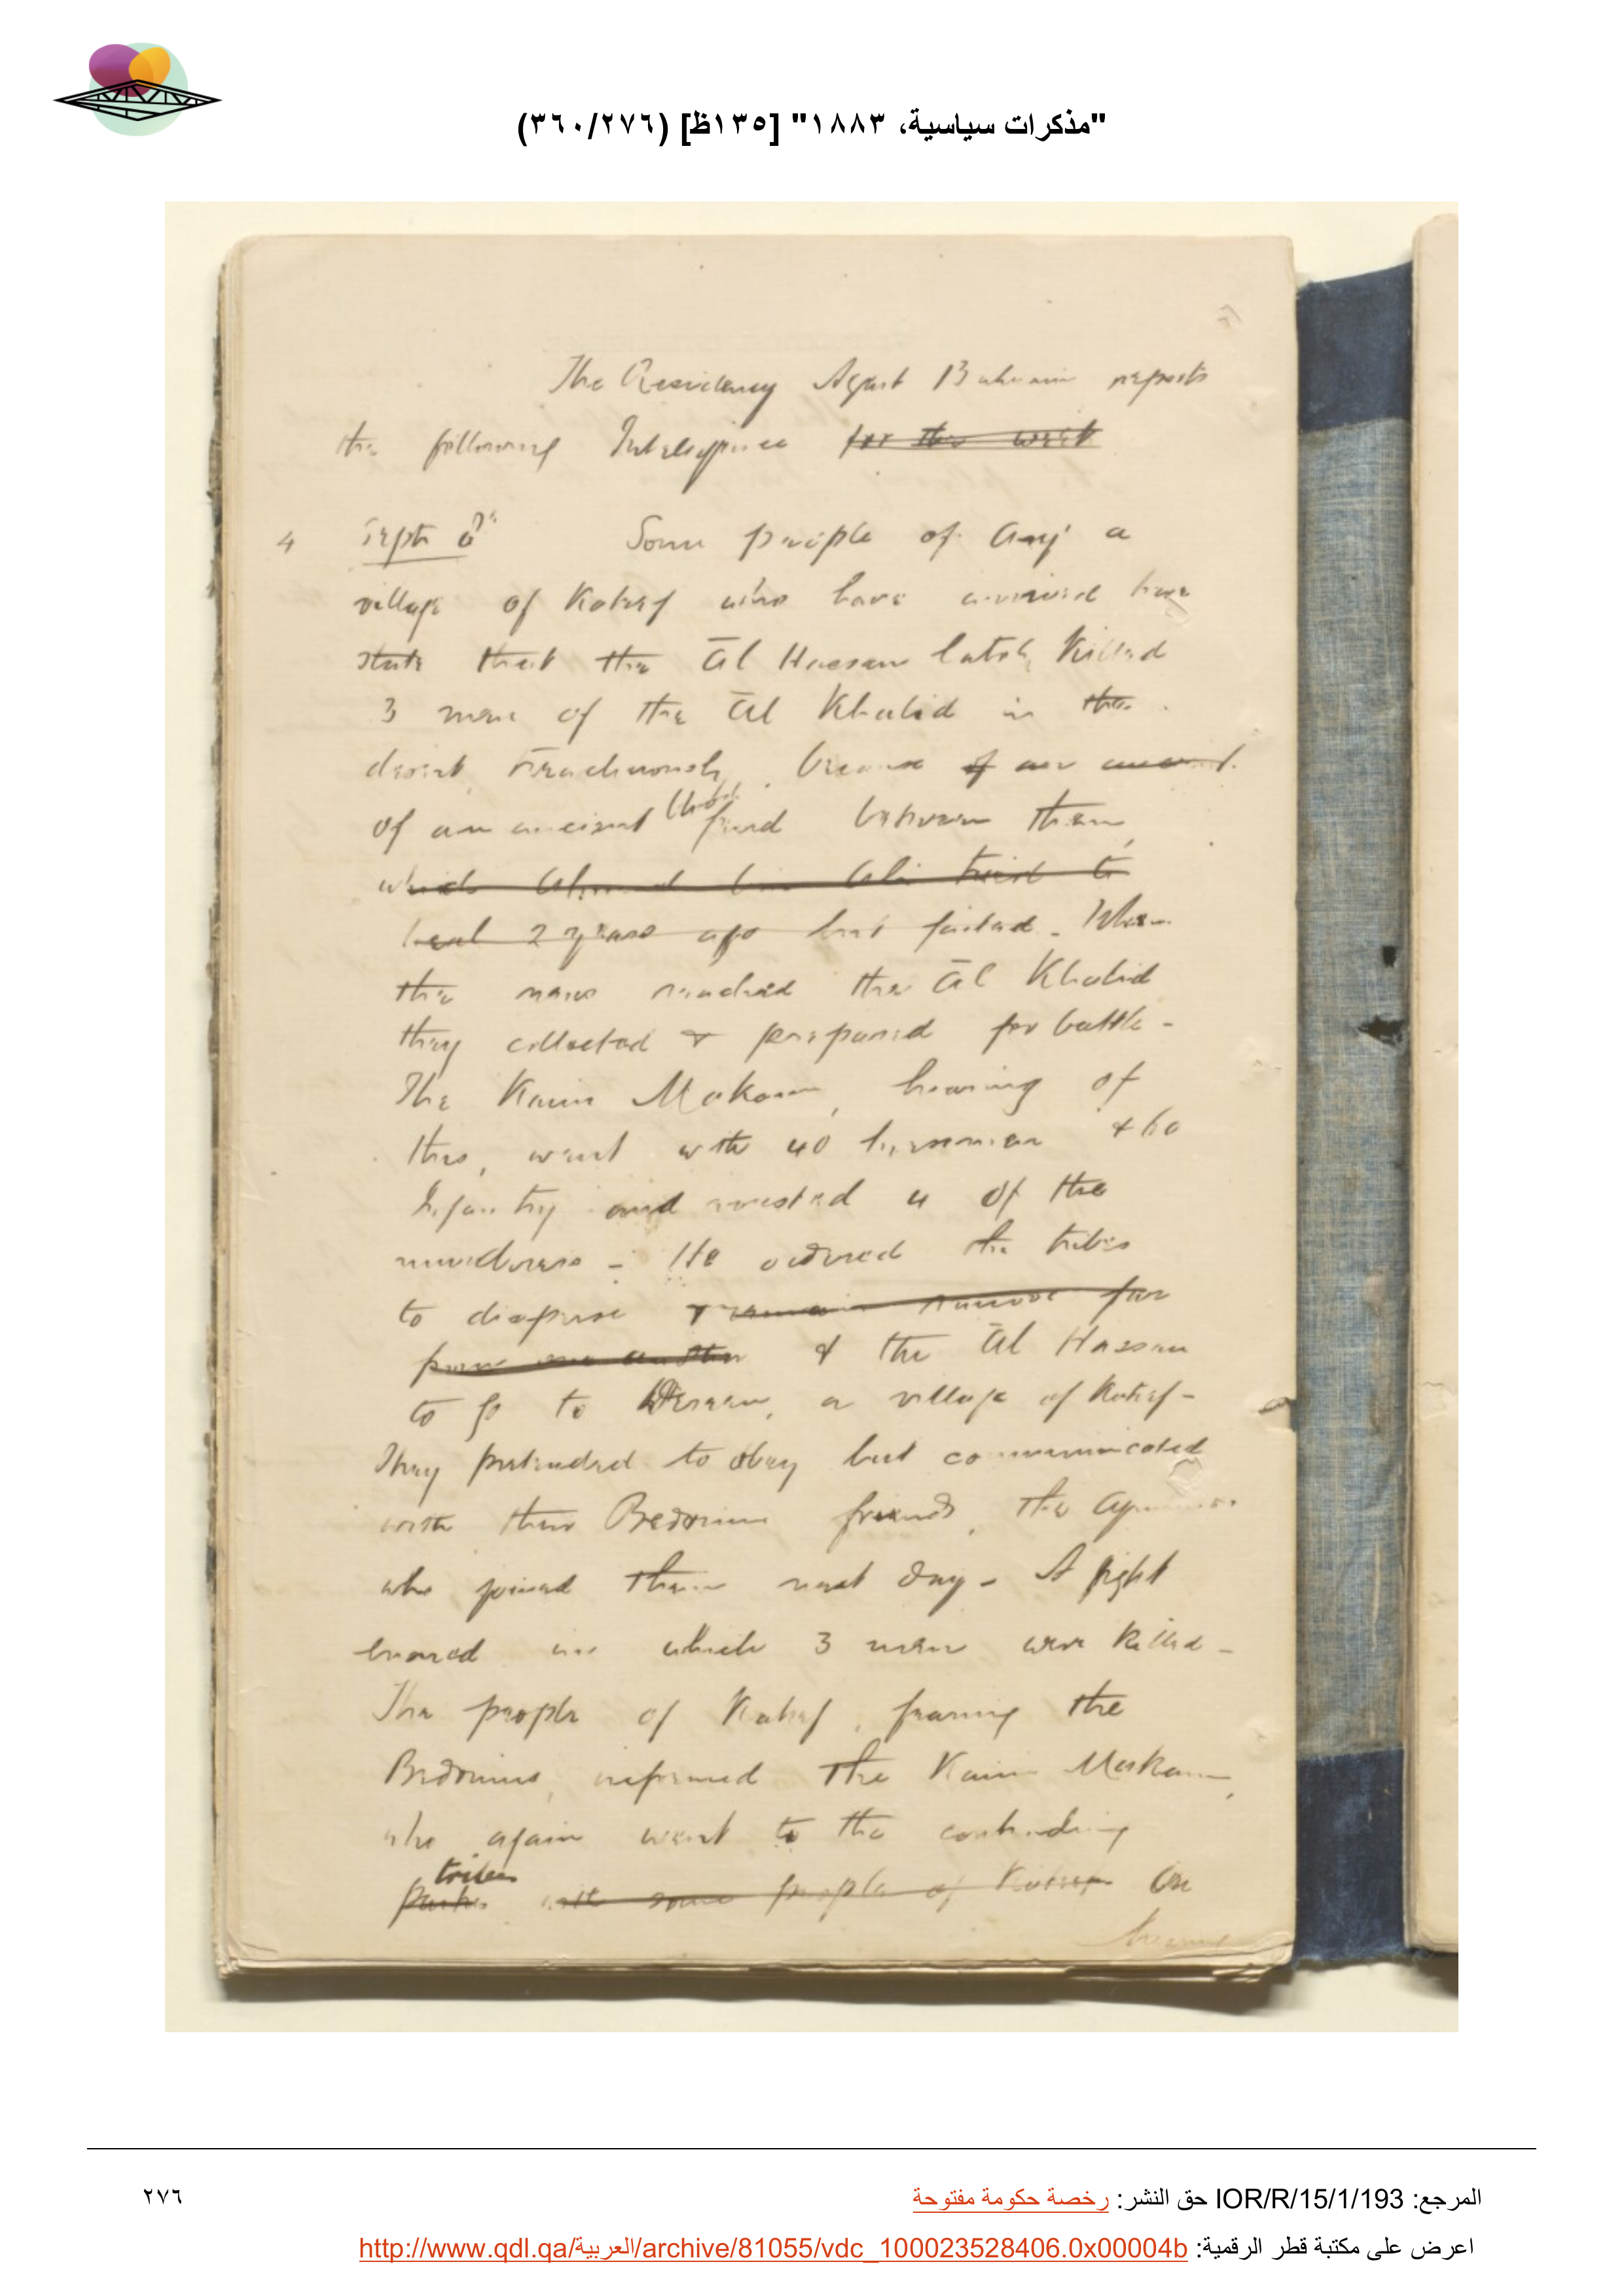 "مذكرات سياسية، ١٨٨٣" [١٣٥ظ] (٣٦٠/٢٧٦)
The Residency Agent Bahrain reports
the following Intelligence for the week
4 Sept 6th Some people of a
village of Katif who have arrived here
state that the Āl Hassan lately killed
3 men of the Āl Khalid in the
desert, treacherously, because of an ancient
of an ancient blood feud between them,
which Ahmed bin Ali tried to
heal 2 years ago but failed. When
the news reached the Āl Khalid
they collected & prepared for battle -
The Kaim Makam, hearing of
this, went with 40 horsemen & 60
Infantry and arrested 4 of the
murderers - He ordered the tribes
to disperse & remain remove far
from one another & the Āl Hassan
to go to , a village of Katif -
They pretended to obey but communicated
with their Bedouin friends, the
who joined them next day - A fight
ensued in which 3 men were killed -
The people of Katif, fearing the
Bedouins, informed the Kaim Makam,
who again went to the contending
tribes
parties with some people of Katif On
hearing
المرجع: IOR/R/15/1/193 حق النشر: رخصة حكومة مفتوحة
٢٧٦
اعرض على مكتبة قطر الرقمية: http://www.qdl.qa/العربية/archive/81055/vdc_100023528406.0x00004b